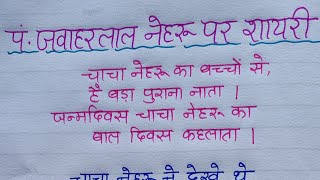 पं. जवाहरलाल नेहरू पर शायरी
चाचा नेहरू का बच्चों से,
है बड़ा पुराना नाता ।
जन्मदिवस चाचा नेहरू का
बाल दिवस कहलाता ।
चाचा नेहरू ने देखे थे